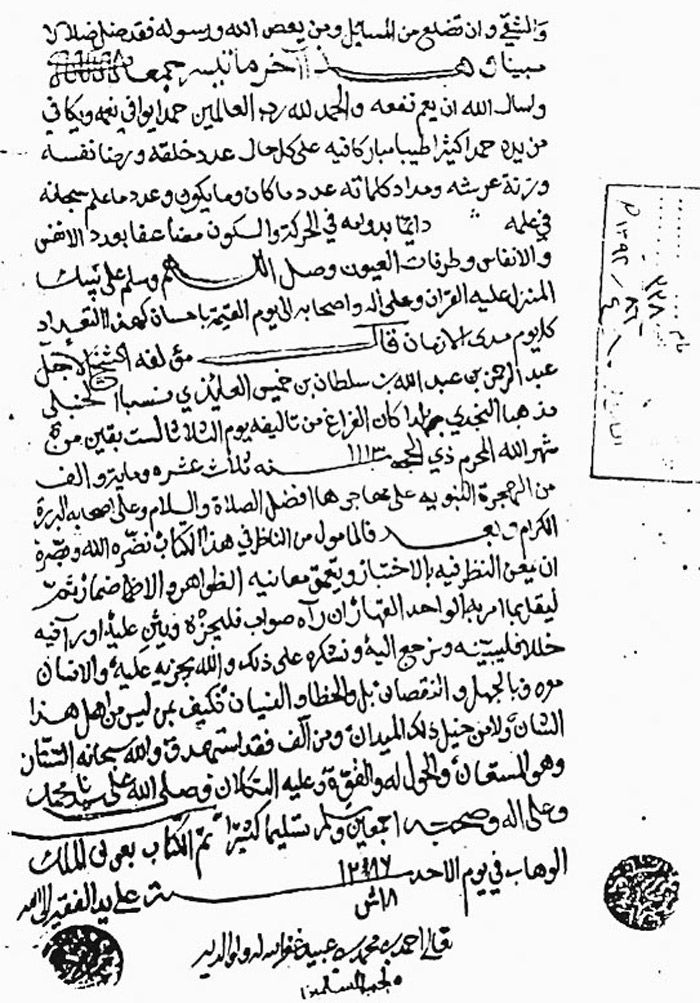 والشقي وان تضلع من المسايل ومن يعص الله ورسوله فقد ضل ضلالا
مبينا هذا آخر ما تيسر جمعه
ونسال الله ان يعم نفعه والحمد لله رب العالمين حمدا يوافي نعمه ويكافي
مزيده حمدا كثيرا طيبا مباركا فيه على كل حال عدد خلقه ورضا نفسه
وزنة عرشه ومداد كلماته عدد ما كان وما يكون وعدد ما علم سبحانه
في علمه دايما بدوامه في الحركة والسكون مضاعفا بعدد الانفس
والانفاس وطرفات العيون وصل اللهم وسلم على نبيك
المنزل عليه القرآن وعلى اله واصحابه الى يوم القيمة باحسان كهذا التعداد
كل يوم مدى الازمان قال مؤلفه الشيخ الاجل
عبد الرحمن بن عبد الله بن سلطان بن خميس العايذي نسبا الحنبلي
مذهبا النجدي كان الفراغ من تاليفه يوم الثلاثا لست بقين من
شهر الله المحرم ذي الحجة ١١١٣ سنه ثلاث عشره وماية والف
من الهجرة النبويه على مهاجرها افضل الصلاة والسلام وعلى اصحابه البررة
الكرام وبعد فالمامول من الناظر في هذا الكتاب نضره الله وبصره
ان يمعن النظر فيه بالاختبار ويتعمق معانيه الظواهر والاضمار ثم
ليقل بما امر به الواحد القهار ان رآه صواب فليجزه ويثن عليه او رآ فيه
خللا فليبينه ونرجع اليه ونشكره على ذلك والله يجزيه عليه والانسان
معروف بالجهل والنقصان بل والخطا والنسيان فكيف بمن ليس من اهل هذا
الشان ولا من خيل ذلك الميدان ومن آلف فقد استهدف والله سبحانه
وهو المستعان والحول له والقوة وعليه التكلان وصلى الله على سيدنا محمد
وعلى اله وصحبه اجمعين وسلم تسليما كثيرا تم الكتاب بعون الملك
الوهاب في يوم الاحد ١٢٨٦ على يد الفقير الى الله
١٨ ش
احمد بن محمد بن عبيد غفر الله له ولوالديه
ولجميع المسلمين
٣٣٨
٨٦
١٣٩٢